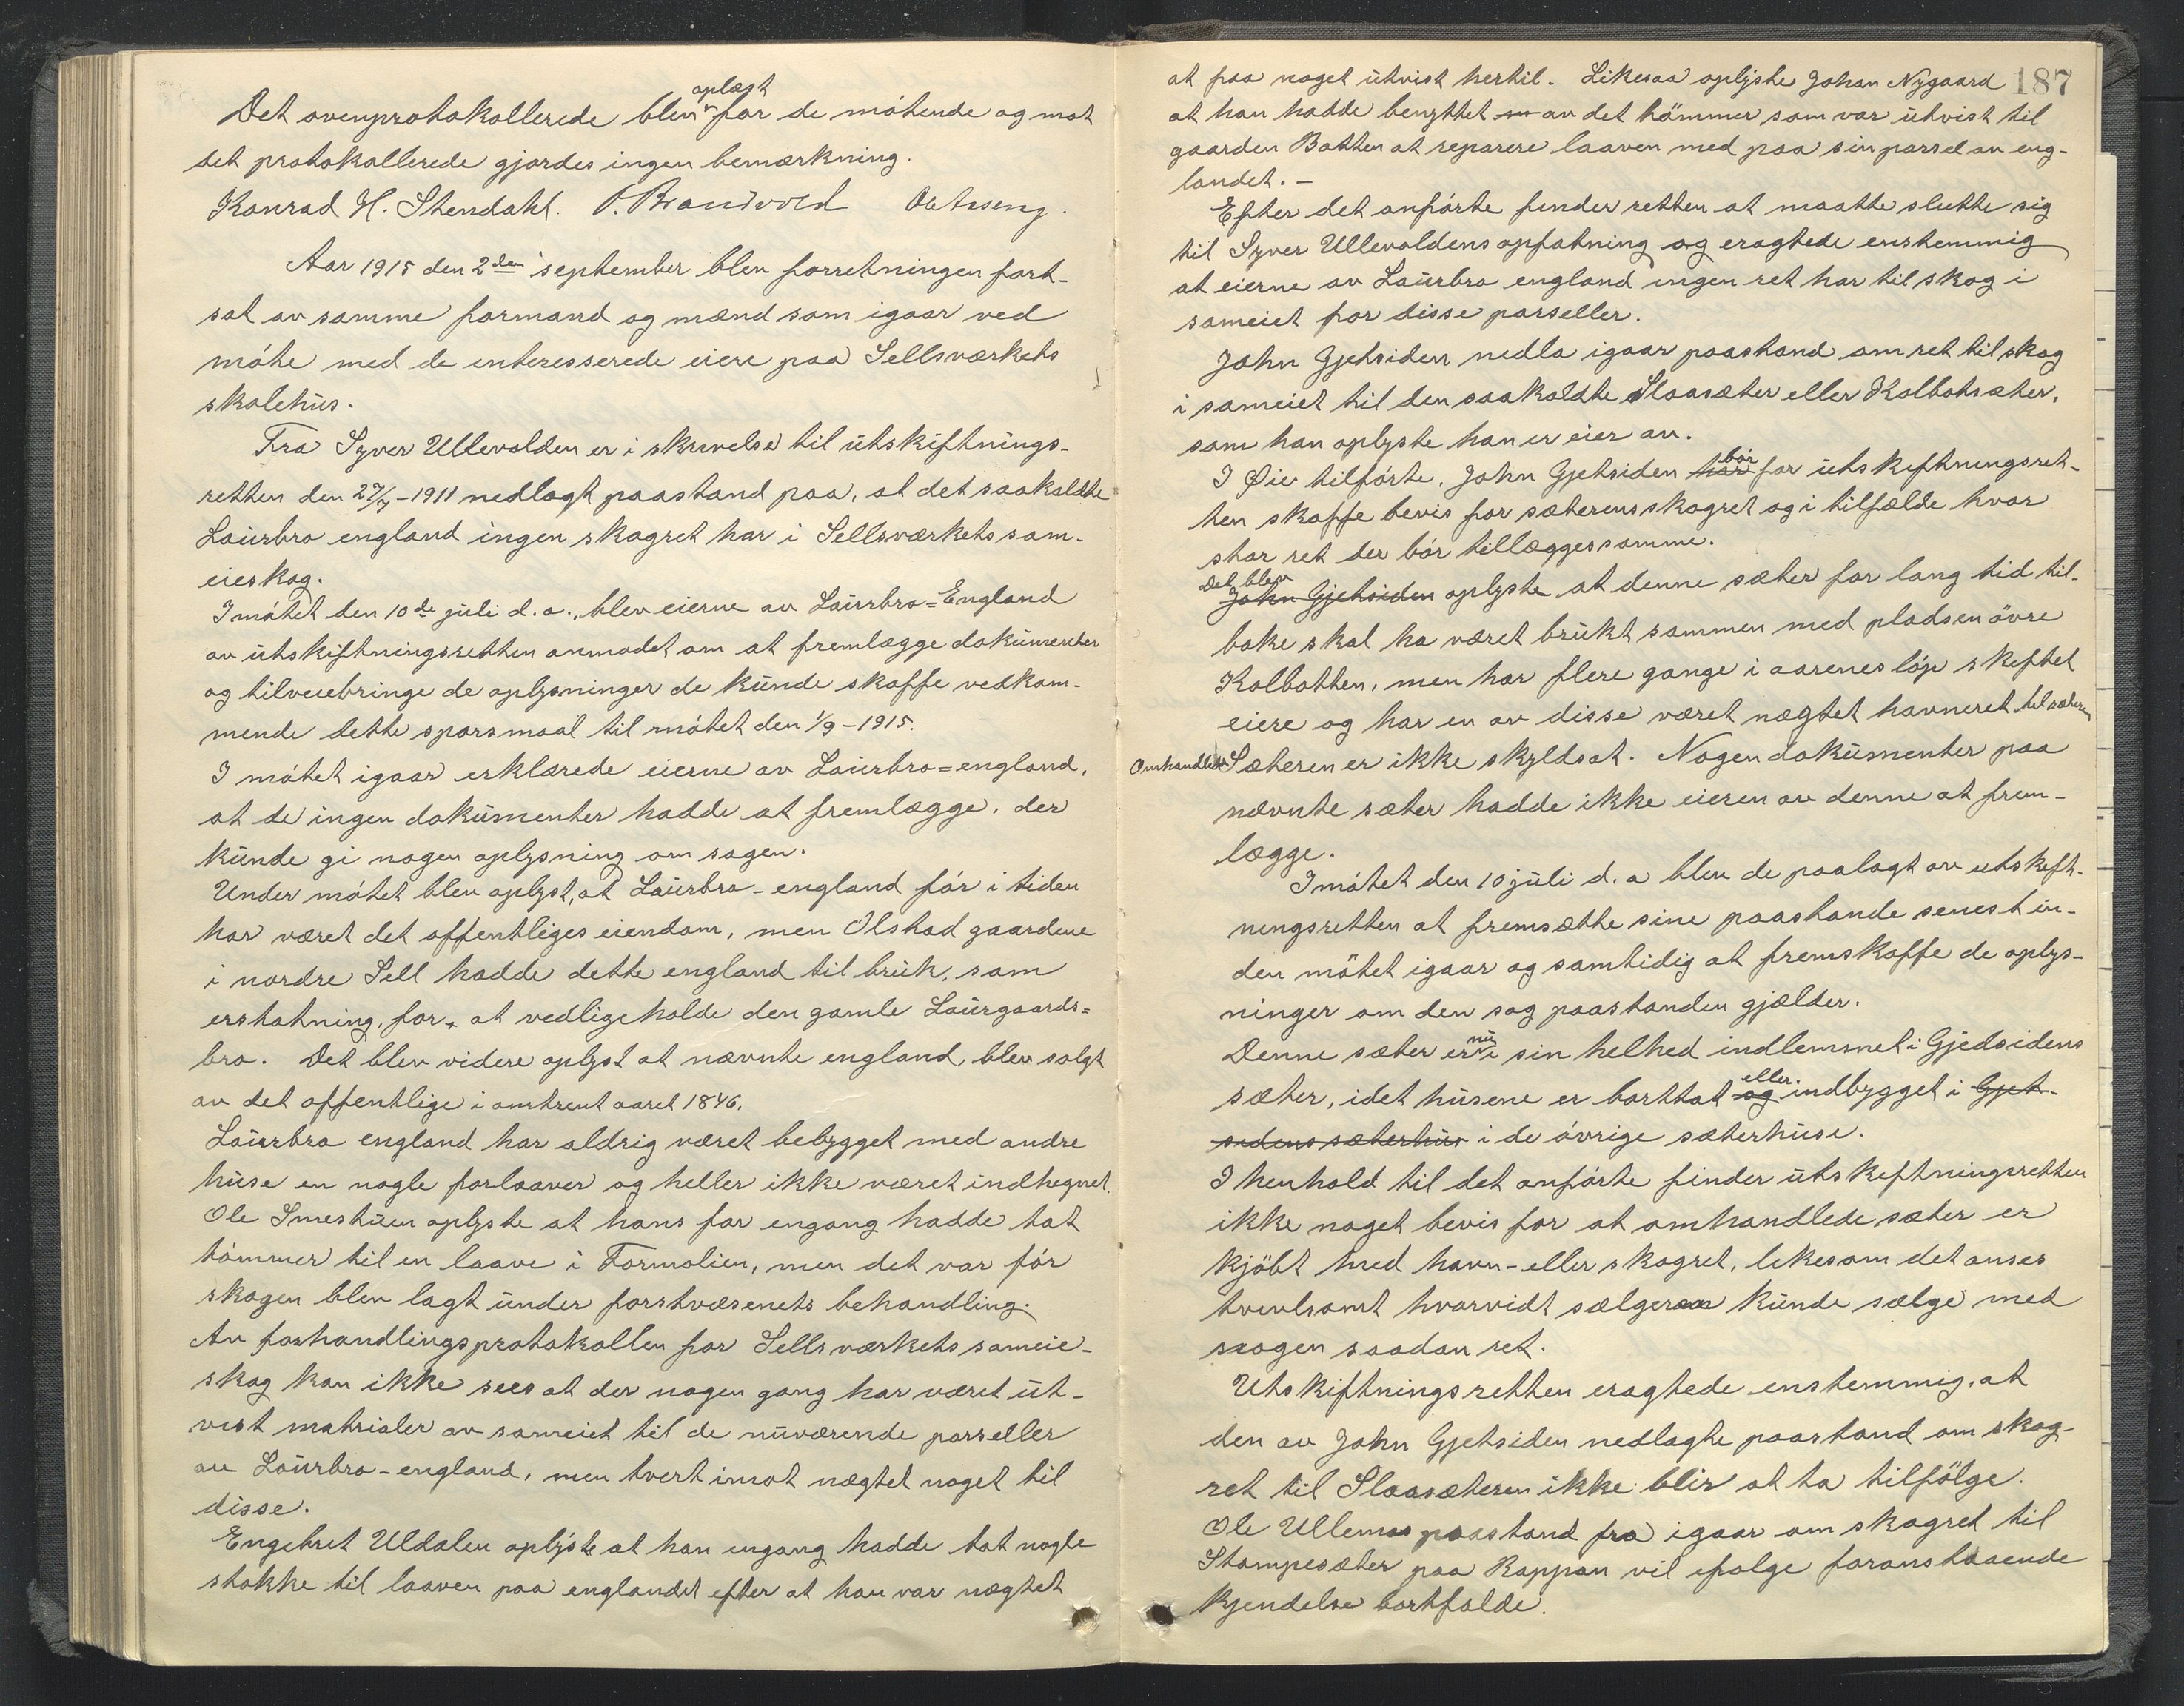 Det ovenprotokollerede blev oplæst for de møtende og mot
det protokollerede gjordes ingen bemærkning.
Konrad H. Stendahl. P. Brandvold Ole Aaseng.
Aar 1915 den 2den september blev forretningen fort-
sat av samme formand og mænd som igaar ved
møte med de interesserede eiere paa Sellsværkets
skolehus.
Fra Syver Ullevolden er i skrivelse til utskiftnings-
retten den 27/7-1911 nedlagt paastand paa, at det saakaldte
Laurbro england ingen skogret har i Sellsværkets sam-
eieskog.
I møtet den 10de juli d.a., blev eierne av Laurbro=England
av utskiftningsretten anmodet om at fremlægge dokumenter
og tilveiebringe de oplysninger de kunde skaffe vedkom-
mende dette spørsmaal til møtet den 1/9-1915.
I møtet igaar erklærede eierne av Laurbro=england,
at de ingen dokumenter hadde at fremlægge, der
kunde gi nogen oplysning om sagen.
Under møtet blev oplyst, at Laurbro-england før i tiden
har været det offentliges eiendom, men Olstad gaardene
i nordre Sell hadde dette england til bruk, som
erstatning, for, at vedligeholde den gamle Laurgaards=
bro. Det blev videre oplyst at nævnte england, blev solgt
av det offentlige i omtrent aaret 1846.
Laurbro england har aldrig været bebygget med andre
huse en nogle forlaaver og heller ikke været indhegnet.
Ole Smestuen oplyste at hans far engang hadde tat
tømmer til en laave i Formolien, men det var før
skogen blev lagt under forstvæsenets behandling.
Av forhandlingsprotokollen for Sellsværkets sameie-
skog kan ikke sees at der nogen gang har været ut-
vist matrialer av sameiet til de nuværende parseller
av Laurbro-england, men tvert imot nægtet noget til
disse.
Engebret Uldalen oplyste at han engang hadde tat nogle
stokke til laaven paa englandet efter at han var nægtet
187
at faa noget utvist hertil. Likesaa oplyste Johan Nygaard
at han hadde benyttet av det tømmer som var utvist til
gaarden Botten at reparere laaven med paa sin parsel av eng-
landet.-
Efter det anførte finder retten at maatte slutte sig
til Syver Ullevoldens opfatning og eragtede enstemmig
at eierne av Laurbro england ingen ret har til skog i
sameiet for disse parseller.
John Gjetsiden nedla igaar paastand om ret til skog
i sameiet til den saakaldte Slaasæter eller Kolbotsæter,
som han oplyste han er eier av.
I Øie tilførte, John Gjetsiden har bør for utskiftningsret-
ten skaffe bevis for sæterens skogret og i tilfælde hvor
stor ret der bør tillægges samme.
Det blev John Gjetsiden oplyste at denne sæter for lang tid til-
bake skal ha været brukt sammen med pladsen øvre
Kolbotten, men har flere gange i aarenes løp skiftet
eiere og har en av disse været nægtet havneret til sæteren
Omhandlede Sæteren er ikke skyldsat. Nogen dokumenter paa
nævnte sæter hadde ikke eieren av denne at frem-
lægge.
I møtet den 10 juli d.a blev de paalagt av utskift-
ningsretten at fremsætte sine paastande senest in-
den møtet igaar og samtidig at fremskaffe de oplys-
ninger om den sag paastanden gjælder.
Denne sæter er nu i sin helhed indlemmet i Gjedsidens
sæter, idet husene er borttat og eller indbygget i Gjet-
sidens sæterhus i de øvrige sæterhuse.
I henhold til det anførte finder utskiftningsretten
ikke noget bevis for at omhandlede sæter er
kjøbt med havn- eller skogret, likesom det anses
tvivlsomt hvorvidt sælger kunde sælge med
nogen saadan ret.
Utskiftningsretten eragtede enstemmig, at
den av John Gjetsiden nedlagte paastand om skog-
ret til Slaasæteren ikke blir at ta tilfølge.
Ole Ullemos paastand fra igaar om skogret til
Stampesæter paa Rappan vil ifølge foranstaaende
kjendelse bortfalde.